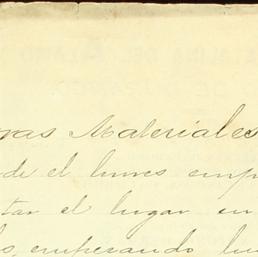 ras Materiales
de el lunes emp
tar el lugar en
s, emperando lu